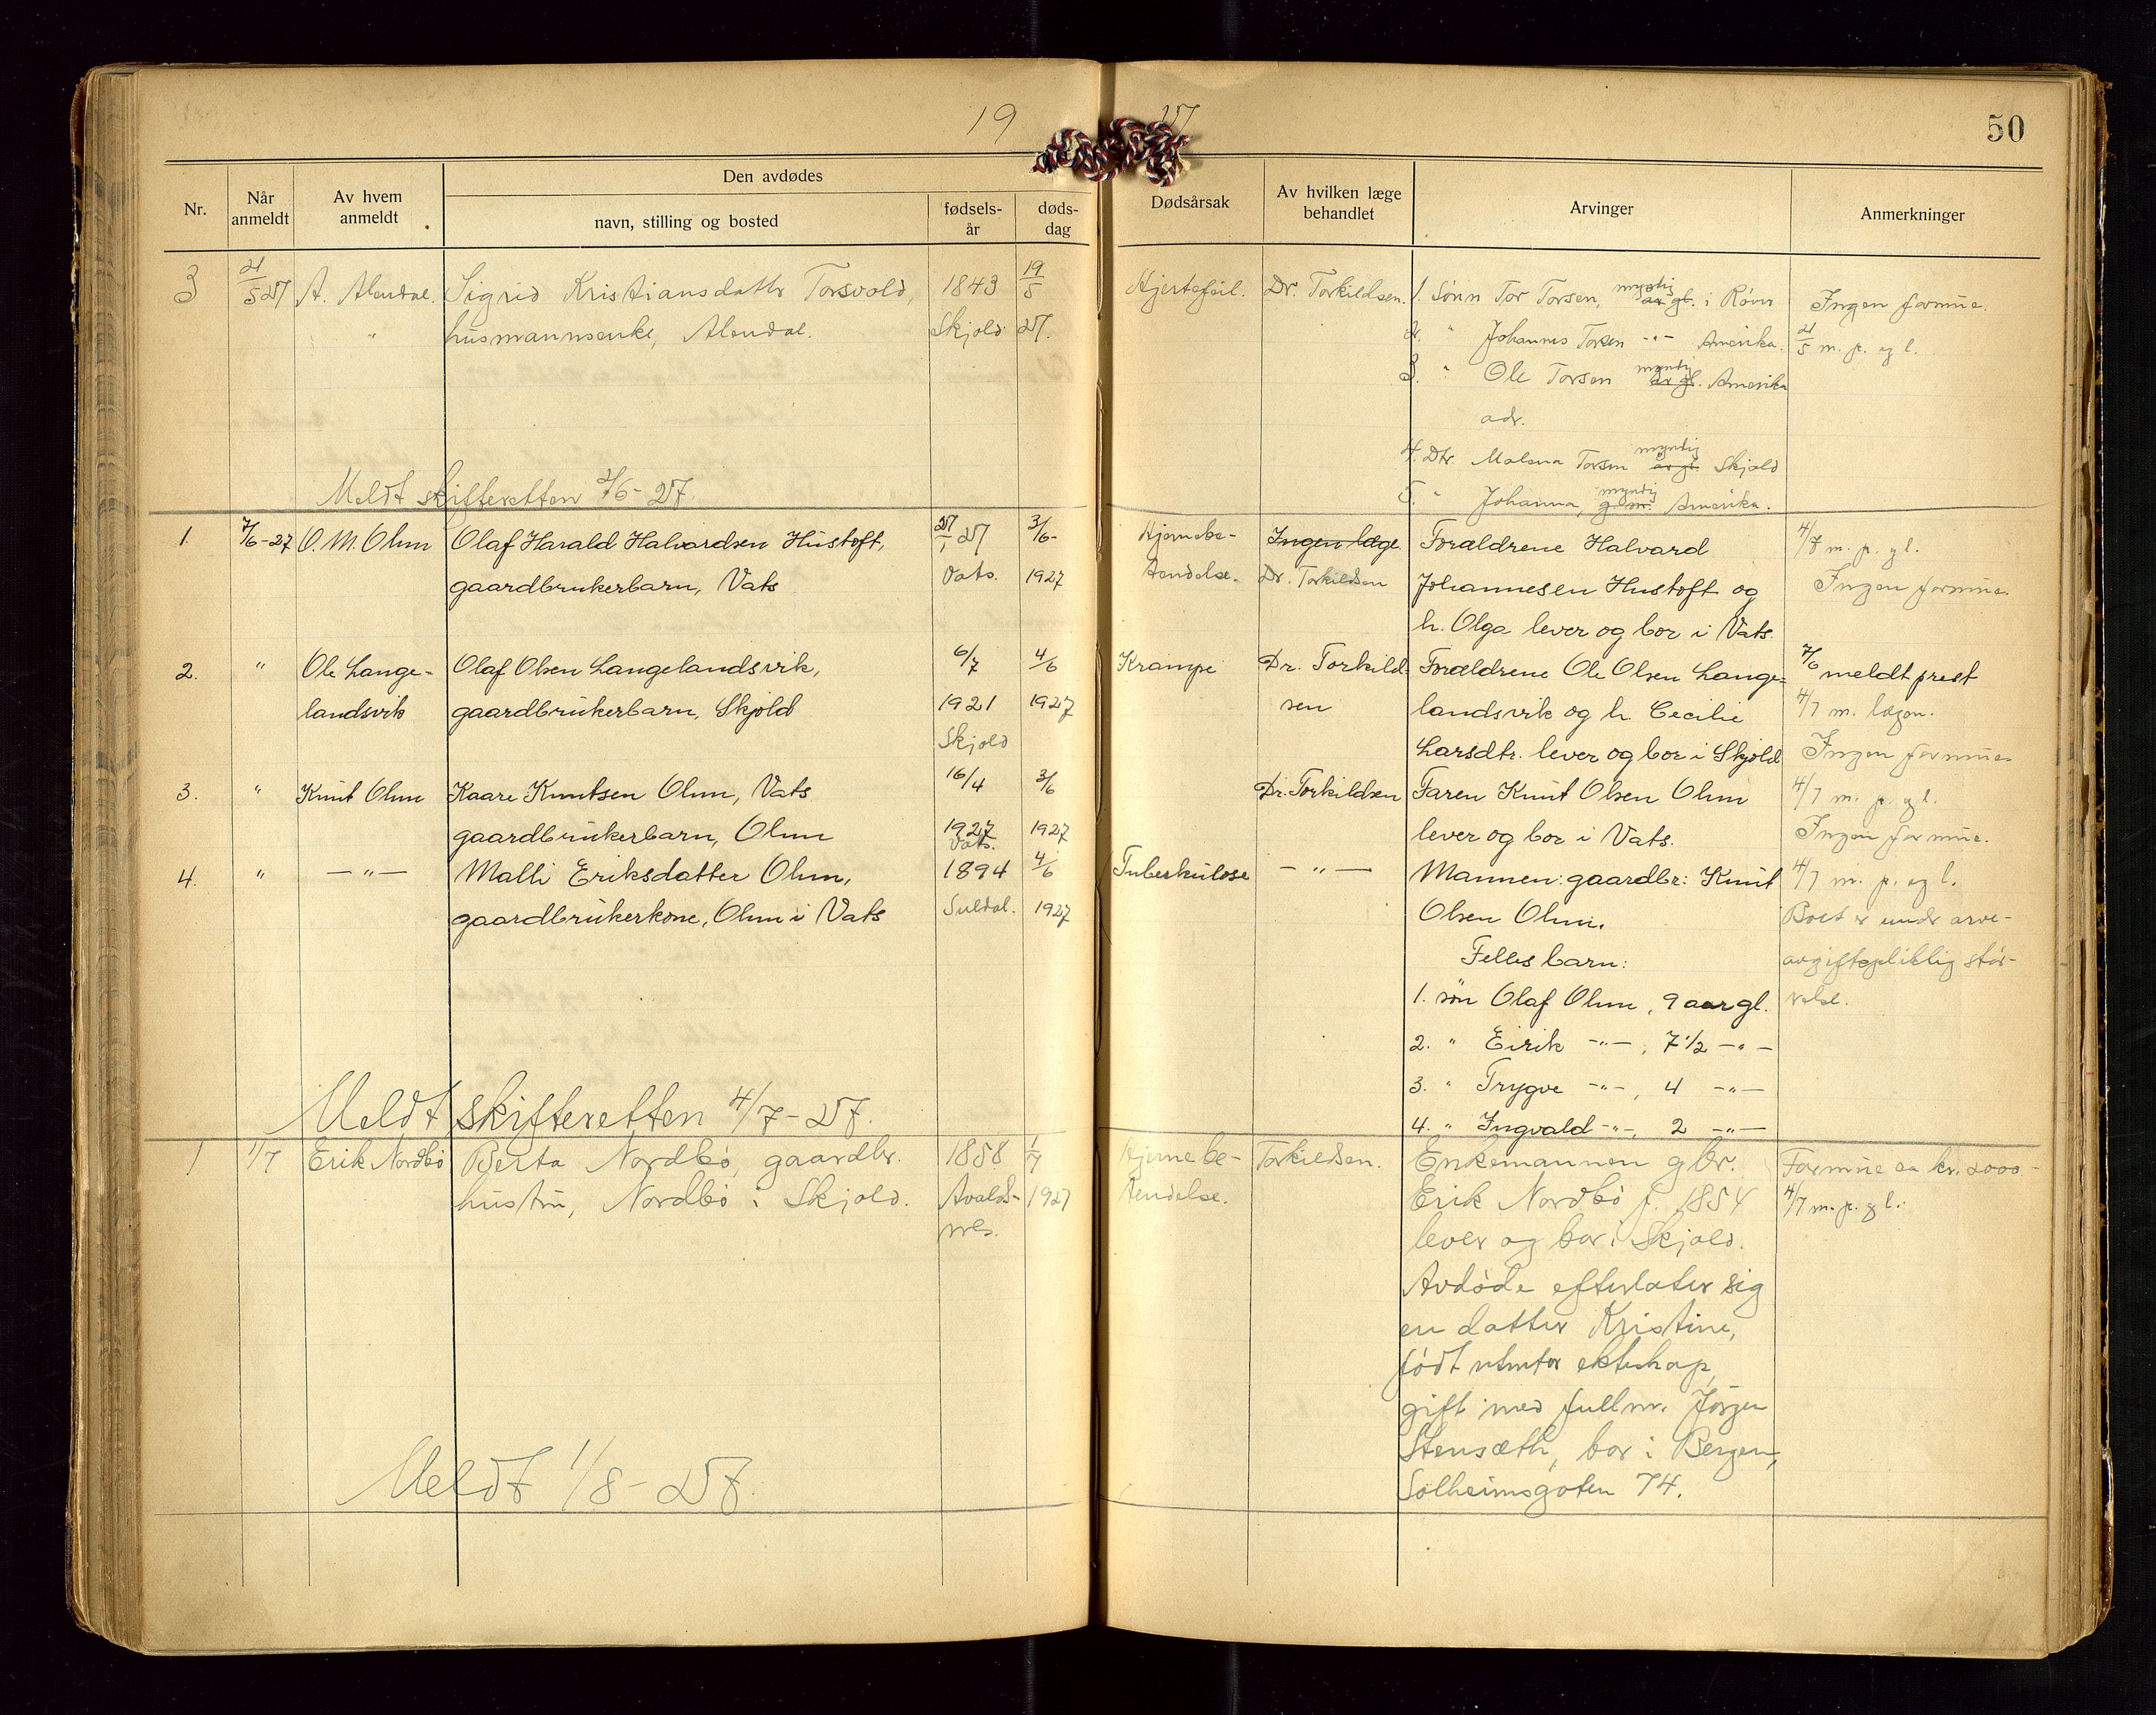 19 27
50
Nr.
Når anmeldt
Av hvem anmeldt
Den avdødes
navn, stilling og bosted
fødsels-år
døds-dag
Dødsårsak
Av hvilken læge behandlet
Arvinger
Anmerkninger
3 21/5 27 A. Alendal. Sigrid Kristiansdatter Torsvold, 1843 19/5 Hjertefeil. Dr. Torkildsen. 1. Sønn Tor Torsen, myndig i Ingen formue.
" husmannsenke, Alendal. Skjold 27. 2. " Johannes Torsen -"- Amerika. 21/5 m. p. og l.
3. " Ole Torsen myndig Amerika
adr.
4. Dtr. Malena Torsen myndig Skjold
Meldt skifteretten 2/6-27.
5. " Johanna, myndig Amerika.
1. 7/6-27 O. M. Ohm Olaf Harald Halvardsen Hustoft, 27/1 27 3/6- Hjernebe- Ingen læge Forældrene Halvard 4/7 m. p. og l.
gaardbrukerbarn, Vats Vats. 1927 tendelse. Dr. Torkildsen Johannesen Hustoft og Ingen formue.
h. Olga lever og bor i Vats.
2. " Ole Lange- Olaf Olsen Langelandsvik, 6/7 4/6 Krampe Dr. Torkild- Forældrene Ole Olsen Lange- 7/6 meldt prest
landsvik gaardbrukerbarn, Skjold 1921 1927 sen landsvik og h. Cecilie 4/7 m. lægen.
Skjold Larsdtr. lever og bor i Skjold Ingen formue
3. " Knut Ohm Kaare Knutsen Ohm, Vats 16/4 3/6 Dr. Torkildsen Faren Knut Olsen Ohm 4/7 m. p. og l.
gaardbrukerbarn, Ohm 1927 1927 lever og bor i Vats. Ingen formue.
Vats.
4. " -"- Malli Eriksdatter Ohm, 1894 4/6 Tuberkulose -"- Mannen: gaardbr: Knut 4/7 m. p. og l.
gaardbrukerkone, Ohm i Vats Suldal. 1927 Olsen Ohm. Boet er under arve-
Felles barn: avgiftspliktig stør-
1. søn Olaf Ohm, 9 aar gl. relse.
2. " Eirik -"-, 7 1/2 -"-
3. " Trygve -"-, 4 -"-
Meldt skifteretten 4/7-27.
4. " Ingvald -"-, 2 -"-
1 1/7 Erik Nordbø Berta Nordbø, gaardbr. 1858 1/7 Hjernebe- Torkildsen. Enkemannen gbr. Formue ca kr. 2000.-
hustru, Nordbø i Skjold. Avalds- 1927 tendelse. Erik Nordbø f. 1854 4/7 m. p. og l.
nes. lever og bor i Skjold.
Avdøde efterlater sig
en datter Kristine,
født utenfor ekteskap,
gift med fullm. Jørgen
Stensæth, bor i Bergen,
Meldt 1/8-27
Solheimsgaten 74.